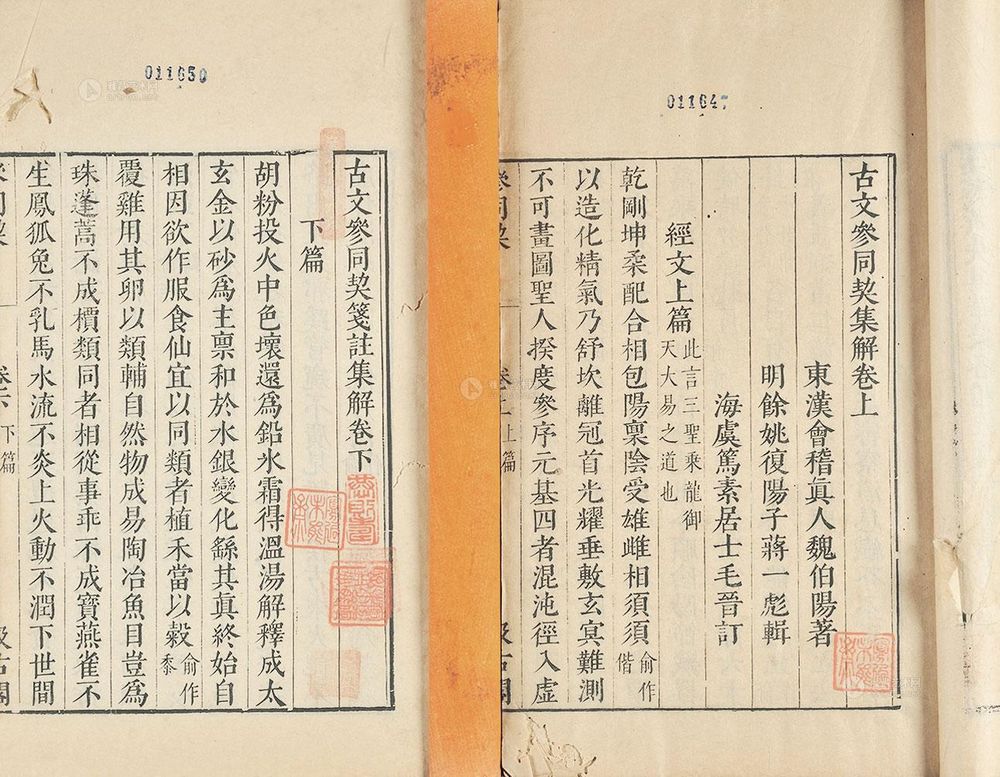 011647
古文參同契集解卷上
東漢會稽真人魏伯陽著
明餘姚復陽子蔣一彪輯
海虞篤素居士毛晉訂
經文上篇此言三聖乘龍御
天大易之道也
乾剛坤柔配合相包陽稟陰受雄雌相須須俞作
偕
以造化精氣乃舒坎離冠首光耀垂敷玄冥難測
不可畫圖聖人揆度參序元基四者混沌徑入虛
參同契
卷上
上篇
汲古閣
011650
古文參同契箋註集解卷下
下篇
胡粉投火中色壞還為鉛氷霜得溫湯解釋成太
玄金以砂為主稟和於水銀變化繇其真終始自
相因欲作服食仙宜以同類者植禾當以穀俞作
黍
覆雞用其卵以類輔自然物成易陶冶魚目豈為
珠蓬蒿不成檟類同者相從事乖不成寶燕雀不
生鳳狐兔不乳馬水流不炎上火動不潤下世間
參同契
卷下
下篇
汲古閣